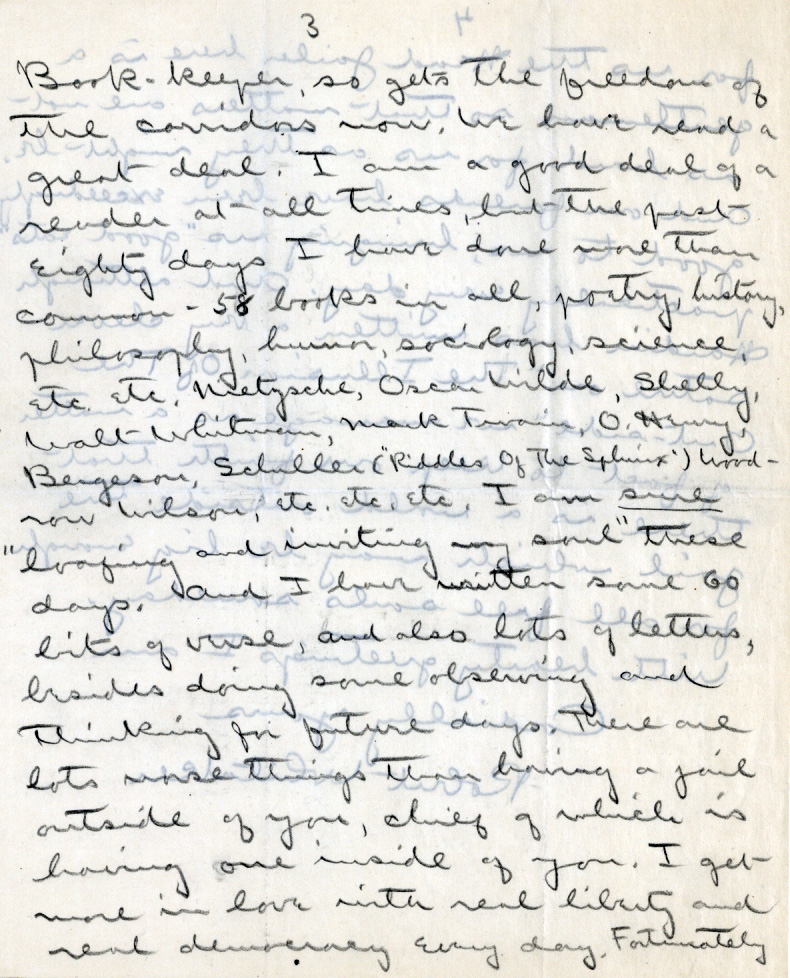 3
Book-keeper, so gets the freedom of
the corridors now. We have read a
great deal. I am a good deal of a
reader at all times, but the past
eighty days I have done more than
common - 58 books in all, poetry, history,
philosophy, humor, sociology, science,
etc. etc. Nietzsche, Oscar Wilde, Shelly,
Walt Whitman, Mark Twain, O. Henry,
Bergeson, Schiller ("Riddles Of The Sphinx") Wood-
row Wilson, etc. etc. etc. I am sure
"loafing and inviting my soul" these
days. And I have written some 60
bits of verse, and also lots of letters,
besides doing some observing and
thinking for future days. There are
lots worse things than having a jail
outside of you, chief of which is
having one inside of you. I get
more in love with real liberty and
real democracy every day. Fortunately